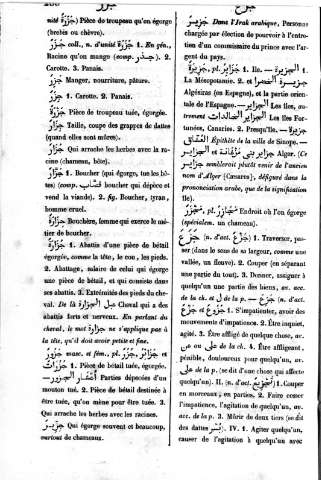 جَزُورَةٌ Pièce de troupeau qu'on égorge
(brebis ou chèvre).
جَزَرٌ coll., n. d'unité جَزَرَةٌ 1. En gén.,
Racine qu'on mange (comp. جذر).
2. Carotte. 3. Panais.
جَزَرٌ Manger, nourriture, pâture.
جِزَرٌ 1. Carotte. 2. Panais.
جَزَرَةٌ Pièce de troupeau tuée, égorgée.
جَزَارٌ Taille, coupe des grappes de dattes
(quand elles sont mûres).
جَزَّارٌ Qui arrache les herbes avec la ra-
cine (chameau, bête).
جَزَّارٌ 1. Boucher (qui égorge, tue les bê-
tes) (comp. قصّاب boucher qui dépèce et
vend la viande). 2. fig. Boucher, tyran,
homme cruel.
جَزَّارَةٌ Bouchère, femme qui exerce le mé-
tier de boucher.
جُزَارَةٌ 1. Abattis d'une pièce de bétail
égorgée, comme la tête, le cou, les pieds.
2. Abattage, salaire de celui qui égorge
une pièce de bétail, et qui consiste dans
ses abattis. 3. Extrémités des pieds du che-
val. De là الجزارة Cheval qui a des
abattis forts et nerveux. En parlant du
cheval, le mot جزارة ne s'applique pas à
la tête, qu'il doit avoir petite et fine.
جَزُورٌ masc. et fém., pl. جُزُرٌ, جزائر,
جُزُرَاتٌ 1. Pièce de bétail tuée, égorgée.
أعشار الجزور Parties dépecées d'un
mouton tué. 2. Pièce de bétail destinée à
être tuée, qu'on mène pour être tuée. 3.
Qui arrache les herbes avec les racines.
جِزِّيرٌ Qui égorge souvent et beaucoup,
surtout de chameaux.
جَزِيرٌ Dans l'Irak arabique, Personne
chargée par élection de pourvoir à l'entre-
tien d'un commissaire du prince avec l'ar-
gent du pays.
جَزِيرَةٌ, pl. جزائر 1. Ile. — الجزيرة
La Mésopotamie. 2. الجزيرة
Algéziras (en Espagne), et la partie orien-
tale de l'Espagne. — الجزاير Les îles, au-
trement الجزاير الخالدات Les îles For-
tunées, Canaries. 2. Presqu'île. — جزيرة
Épithète de la ville de Sinope.
جزاير بني مزغانة et الجزاير Alger. (Ce
semblerait plutôt venir de l'ancien
nom d'Alger (Cæsarea), défiguré dans la
prononciation arabe, que de la signification
île).
مَجْزِرٌ, pl. مَجَازِرُ Endroit où l'on égorge
(spécialem. un chameau).
جَزَعَ (n. d'act. جَزْعٌ) 1. Traverser, pas-
ser (dans le sens de sa largeur, comme une
vallée, un fleuve). 2. Couper (en séparant
une partie du tout). 3. Donner, assigner à
quelqu'un une partie des biens, av. acc.
de la ch. et ل de la p. — جَزِعَ (n. d'act.
جَزَعٌ et جُزُوعٌ) 1. S'impatienter, avoir des
mouvements d'impatience. 2. Être inquiet,
agité. 3. Être affligé de quelque chose, av.
من ou على de la ch. 4. Être affligeant,
pénible, douloureux pour quelqu'un, av.
على de la p. (se dit d'une chose qui affecte
quelqu'un). II. (n. d'act. تَجْزِيعٌ) 1. Couper
en morceaux, en parties. 2. Faire cesser
l'impatience, l'agitation de quelqu'un, av.
acc. de la p. 3. Mûrir de deux tiers (se dit
des dattes بُسْرٌ). IV. 1. Agiter quelqu'un,
causer de l'agitation à quelqu'un, avec